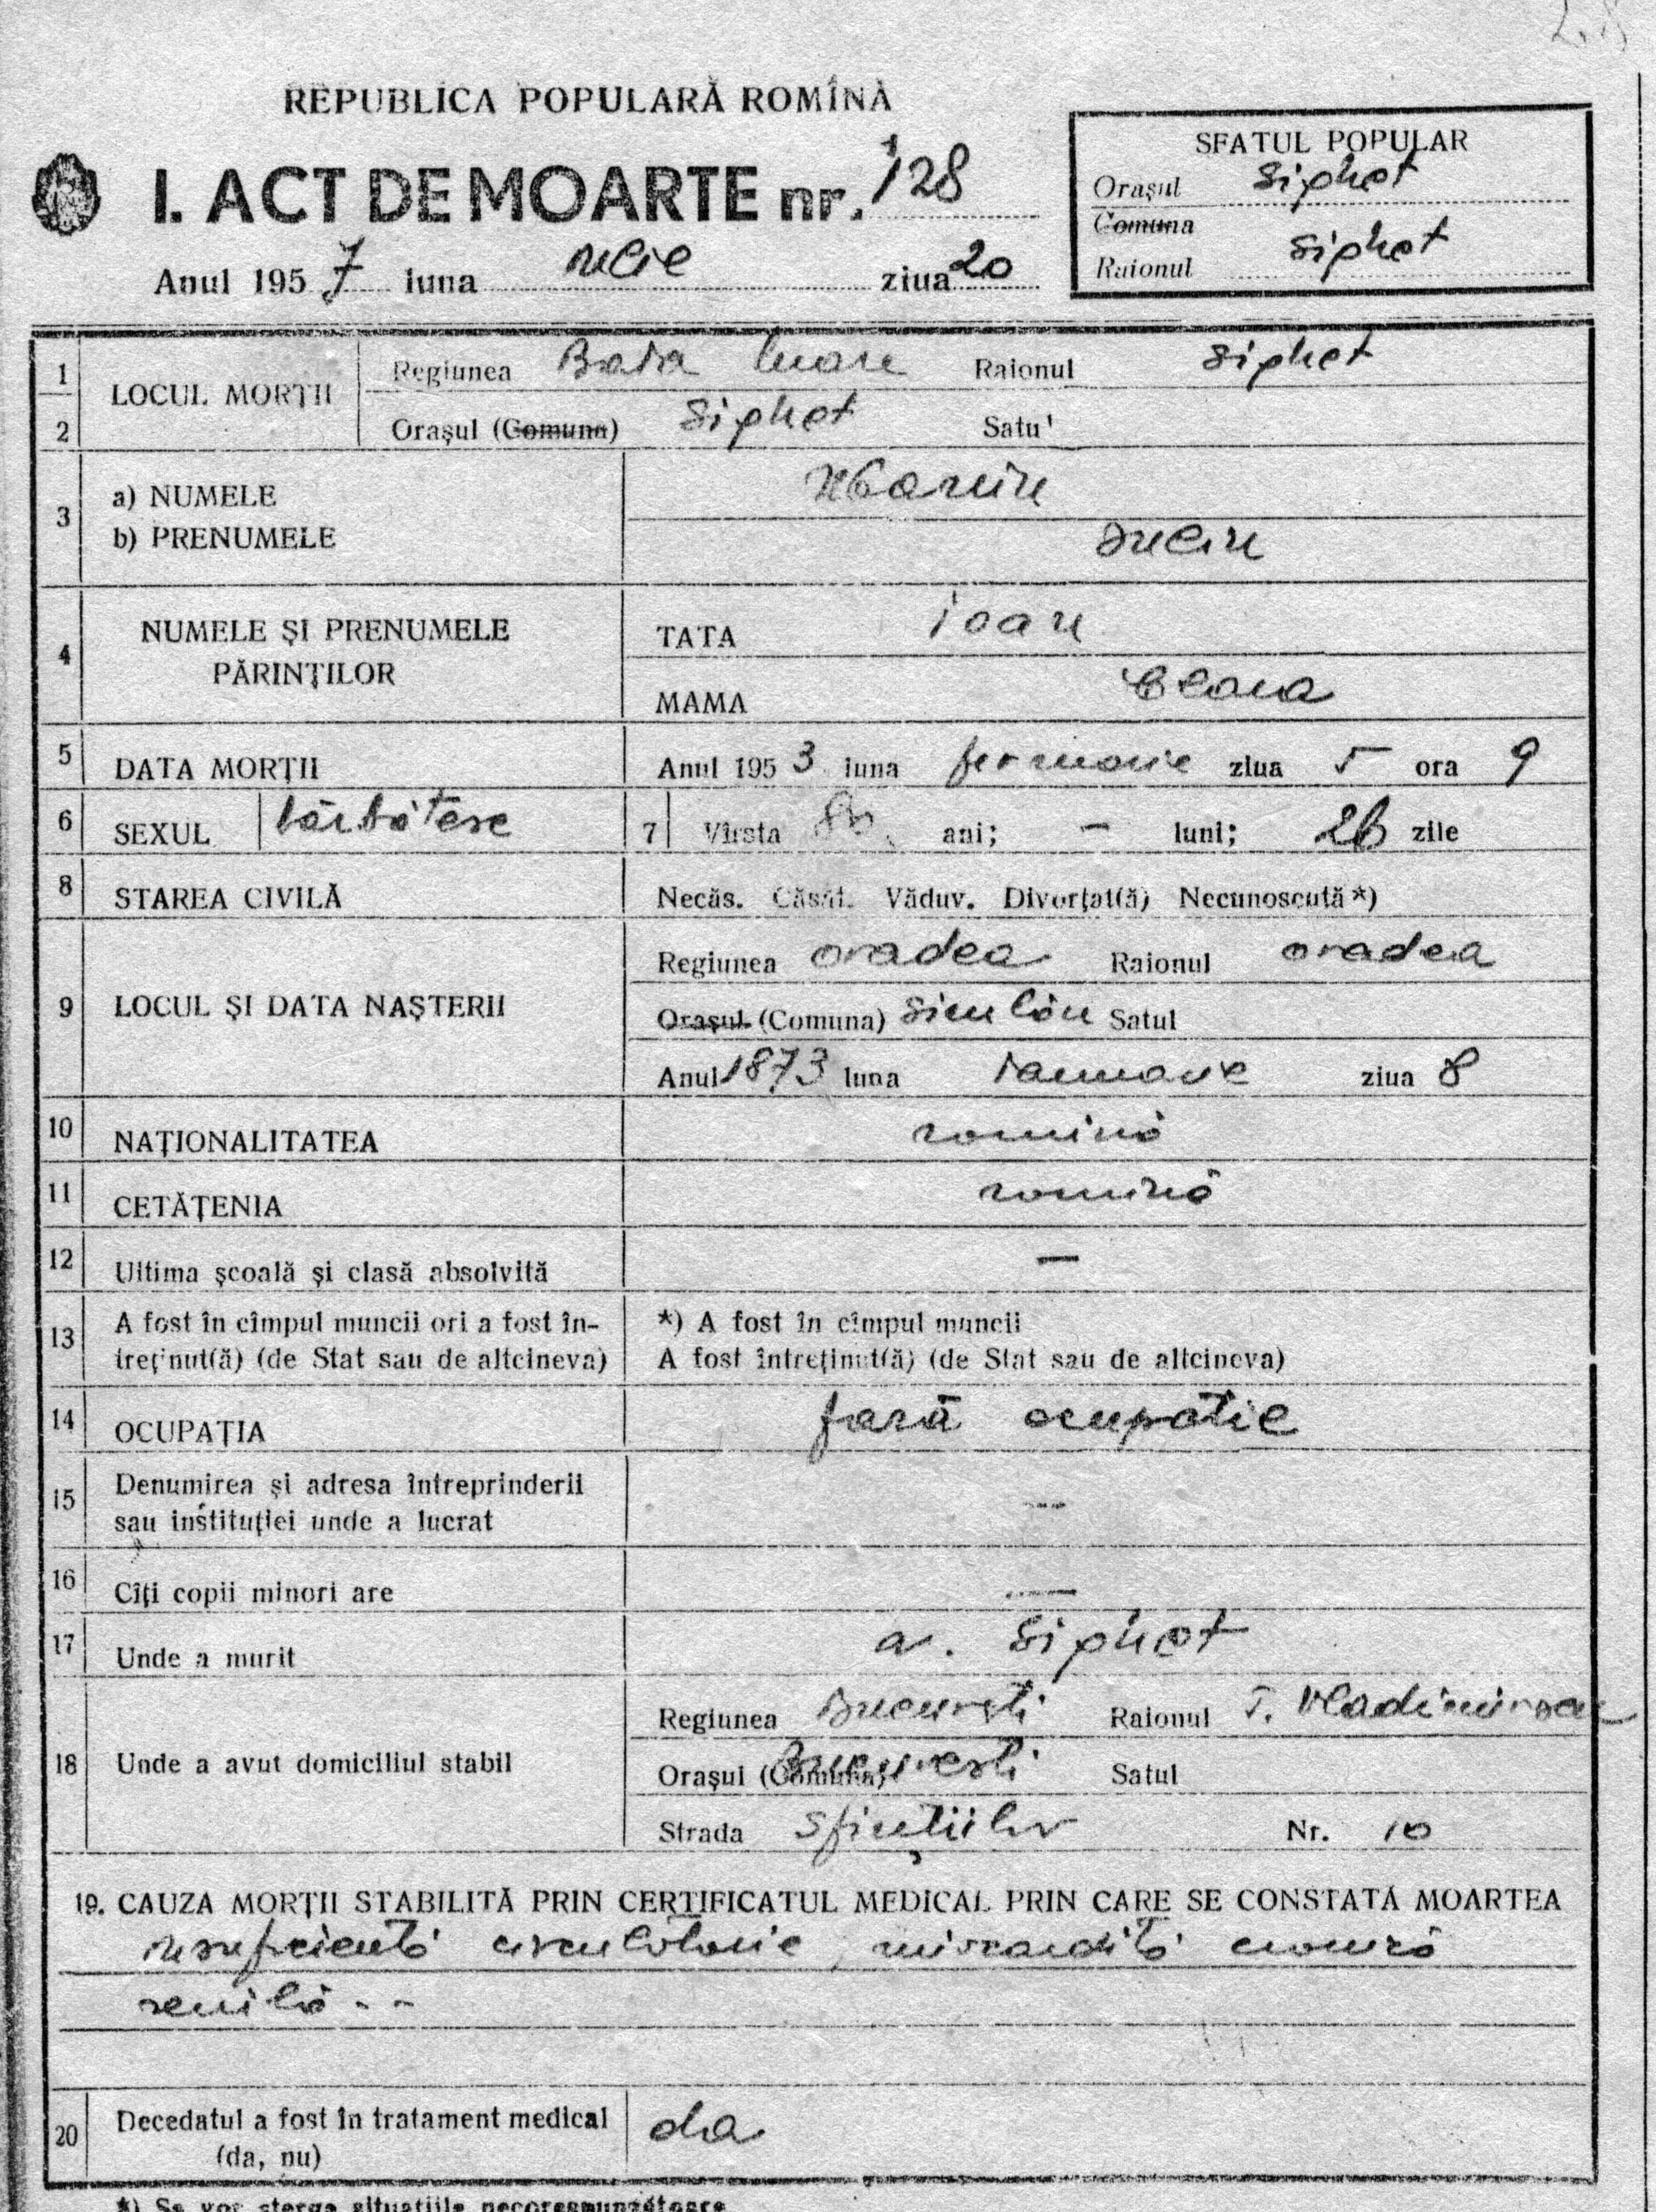 REPUBLICA POPULARĂ ROMÎNĂ
I. ACT DE MOARTE nr. 128
Anul 1957 luna iulie ziua 20
SFATUL POPULAR
Orașul Sighet
Comuna
Raionul Sighet
1 LOCUL MORȚII Regiunea Baia Mare Raionul Sighet
2 Orașul (Comuna) Sighet Satul
3 a) NUMELE
b) PRENUMELE Iuliu
4 NUMELE ȘI PRENUMELE PĂRINȚILOR
TATA Ioan
MAMA
5 DATA MORȚII Anul 1953 luna februarie ziua 5 ora 9
6 SEXUL bărbătesc 7 Vîrsta 80 ani; – luni; 26 zile
8 STAREA CIVILĂ Necăs. Căsăt. Văduv. Divorțat(ă) Necunoscută*)
9 LOCUL ȘI DATA NAȘTERII
Regiunea Oradea Raionul Oradea
Orașul (Comuna) Satul
Anul 1873 luna ianuarie ziua 8
10 NAȚIONALITATEA romînă
11 CETĂȚENIA romînă
12 Ultima școală și clasă absolvită —
13 A fost în cîmpul muncii ori a fost în-
treținut(ă) (de Stat sau de altcineva)
*) A fost în cîmpul muncii
A fost întreținut(ă) (de Stat sau de altcineva)
14 OCUPAȚIA fară ocupatie
15 Denumirea și adresa întreprinderii
sau instituției unde a lucrat —
16 Cîți copii minori are —
17 Unde a murit Sighet
18 Unde a avut domiciliul stabil
Regiunea București Raionul T. Vladimirescu
Orașul (Comuna) București Satul
Strada Sfinților Nr. 10
19. CAUZA MORȚII STABILITĂ PRIN CERTIFICATUL MEDICAL PRIN CARE SE CONSTATĂ MOARTEA
insuficiență circulatorie, miocardită cronică
senilă - -
20 Decedatul a fost în tratament medical
(da, nu) da
*) Se vor șterge situațiile necorespunzătoare